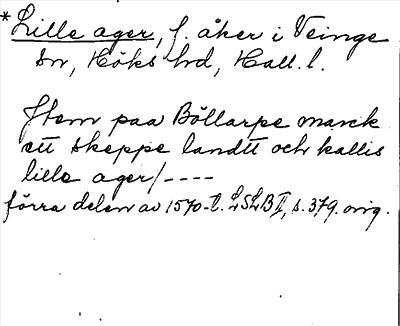 *Lille ager, f. åker i Veinge
sn, Höks hd, Hall. l.
Item paa Böllarpe marck
ett skeppe landtt och kallis
lille ager/----
förra delen av 1570-t. LSLB II, s. 379. orig.